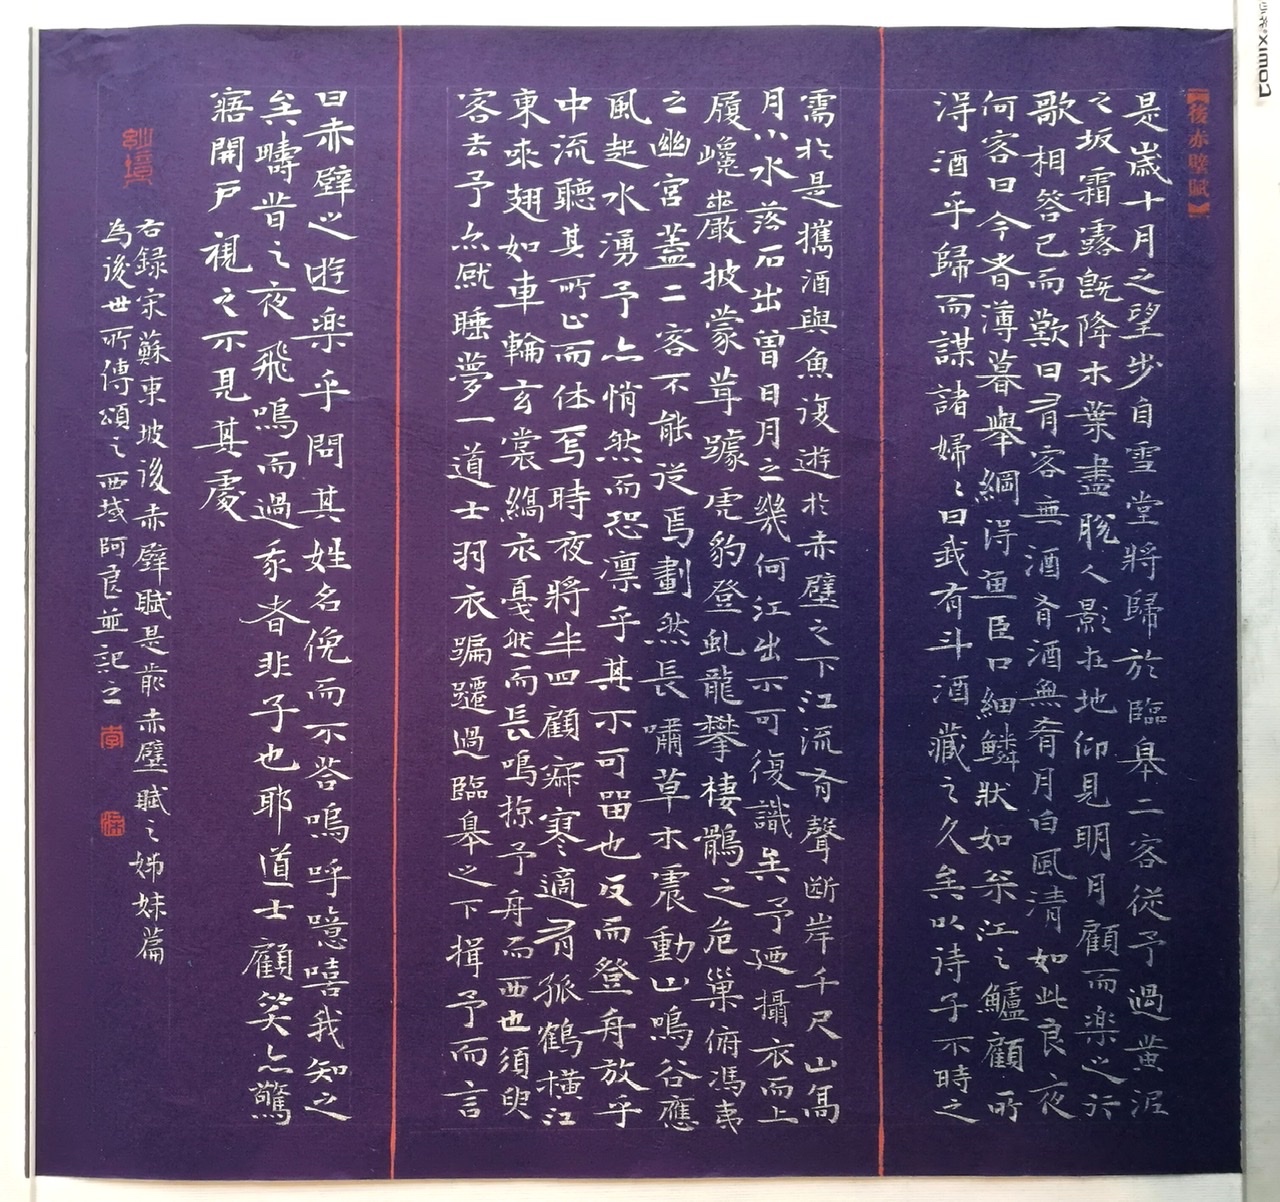 【後赤壁賦】
是歲十月之望步自雪堂將歸於臨皋二客從予過黄泥
之坂霜露旣降木葉盡脱人影在地仰見明月顧而樂之行
歌相答已而歎曰有客無酒有酒無肴月白風清如此良夜
何客曰今者薄暮舉網得魚巨口細鱗狀如松江之鱸顧所
得酒乎歸而謀諸婦〻曰我有斗酒藏之久矣以待子不時之
需於是攜酒與魚復遊於赤壁之下江流有聲斷岸千尺山高
月小水落石出曾日月之幾何江山不可復識矣予廼攝衣而上
履巉巖披蒙茸踞虎豹登虬龍攀棲鶻之危巢俯馮夷
之幽宮蓋二客不能從焉劃然長嘯草木震動山鳴谷應
風起水湧予亦悄然而恐凛乎其不可留也反而登舟放乎
中流聽其所止而休焉時夜將半四顧寂寥適有孤鶴橫江
東來翅如車輪玄裳縞衣戛然而長鳴掠予舟而西也須臾
客去予亦就睡夢一道士羽衣蹁躚過臨皋之下揖予而言
曰赤壁之遊樂乎問其姓名俛而不答嗚呼噫嘻我知之
矣疇昔之夜飛鳴而過我者非子也耶道士顧笑亦驚
寤開戸視之不見其處
右録宋蘇東坡後赤壁賦是前赤壁賦之姊妹篇
為後世所傳頌之西域阿良並記之